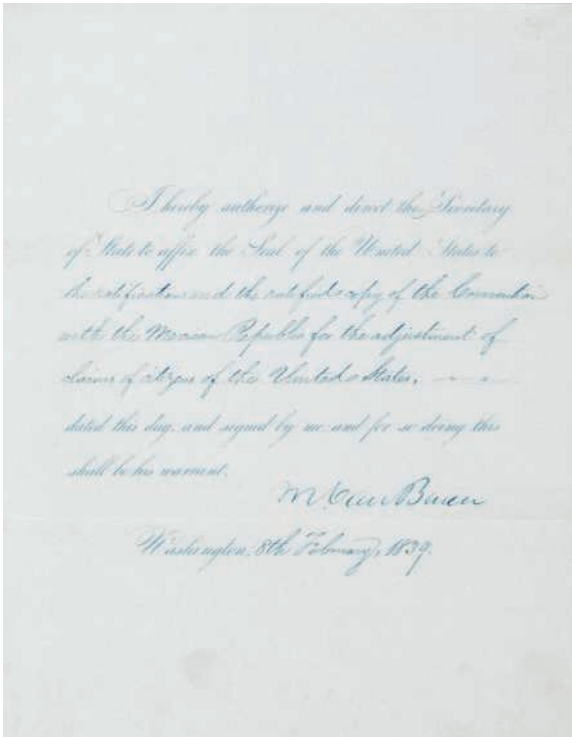 I hereby authorize and direct the Secretary
of State to affix the Seal of the United States to
the ratification and the ratified copy of the Convention
with the Mexican Republic for the adjustment of
claims of citizens of the United States.
dated this day, and signed by me and for so doing this
shall be his warrant.
M Van Buren
Washington, 8th February, 1839.